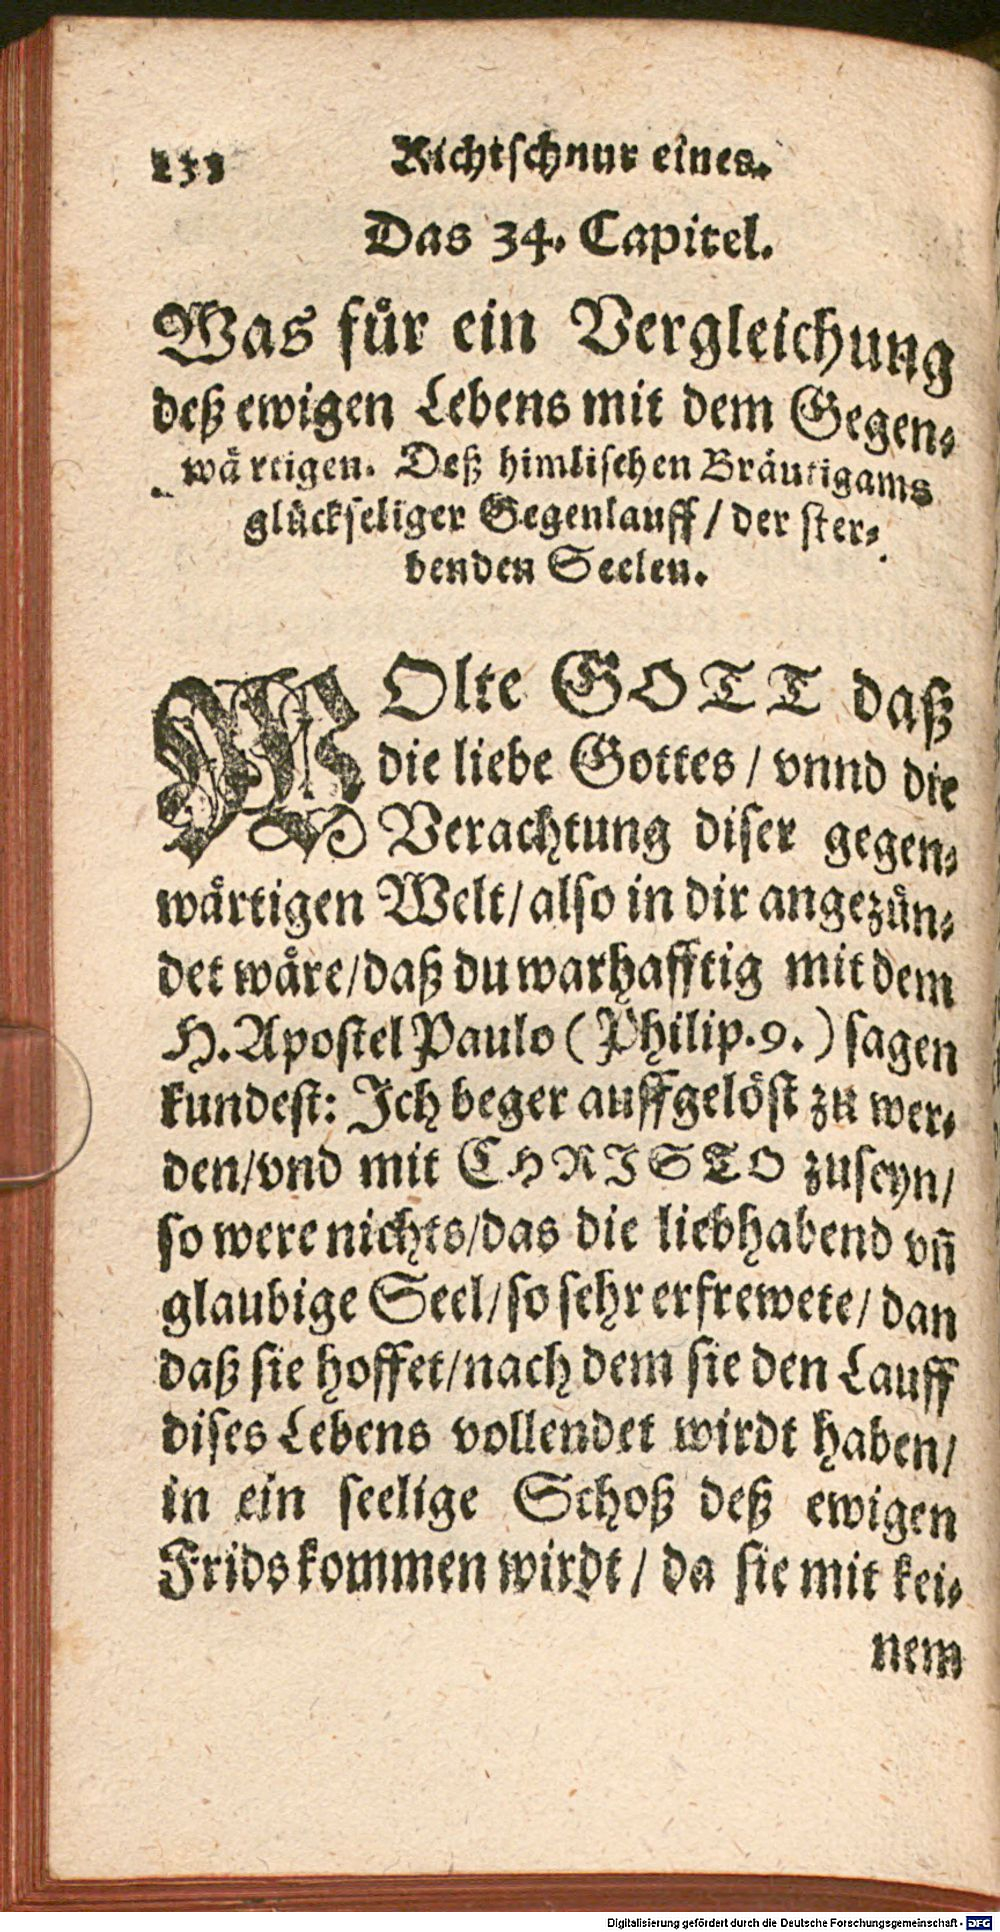 Richtschnur eines.
Das 34. Capitel.
Was fůr ein Vergleichung
deß ewigen Lebens mit dem Gegen-
wärtigen. Deß himlischen Bräutigams
glückseliger Gegenlauff / der ster-
benden Seelen.
WOlte GOTT daß
die liebe Gottes / vnnd die
Verachtung diser gegen-
wärtigen Welt / also in dir angezün-
det wåre / daß du warhafftig mit dem
H. Apostel Paulo ( Philip. 9. ) sagen
kundest: Ich beger auffgelöst zu wer-
den / vnd mit CHRISTO zuseyn /
so were nichts / das die liebhabend vñ
glaubige Seel / so sehr erfrewete / dan
daß sie hoffet / nach dem sie den Lauff
dises Lebens vollendet wirdt haben /
in ein seelige Schoß deß ewigen
Frids kommen wirdt / da sie mit kei-
nem
Digitalisierung gefördert durch die Deutsche Forschungsgemeinschaft - DFG